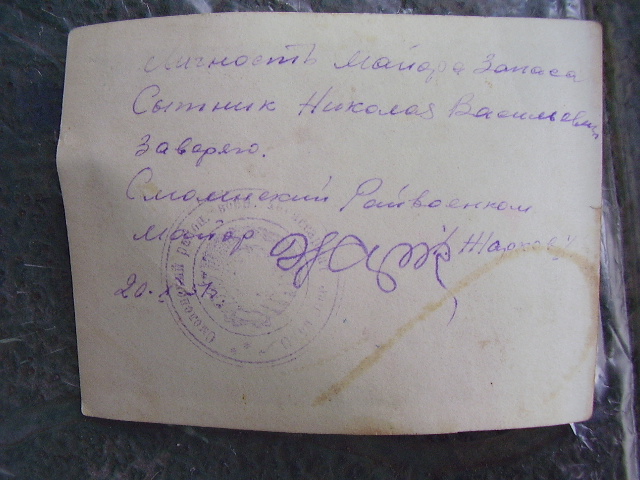 Личность Майора Запаса
Сытник Николая Васильевича
Заверяю.
Райвоенком
Майор /Жарков/
20.